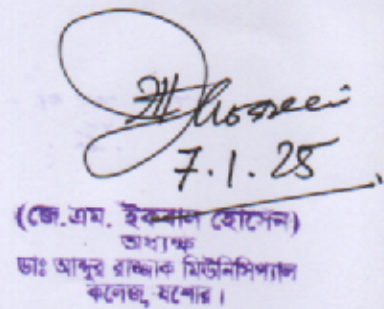 Hossain
7.1.25
(জে.এম. ইকবাল হোসেন)
অধ্যক্ষ
ডাঃ আব্দুর রাজ্জাক মিউনিসিপ্যাল
কলেজ, যশোর।